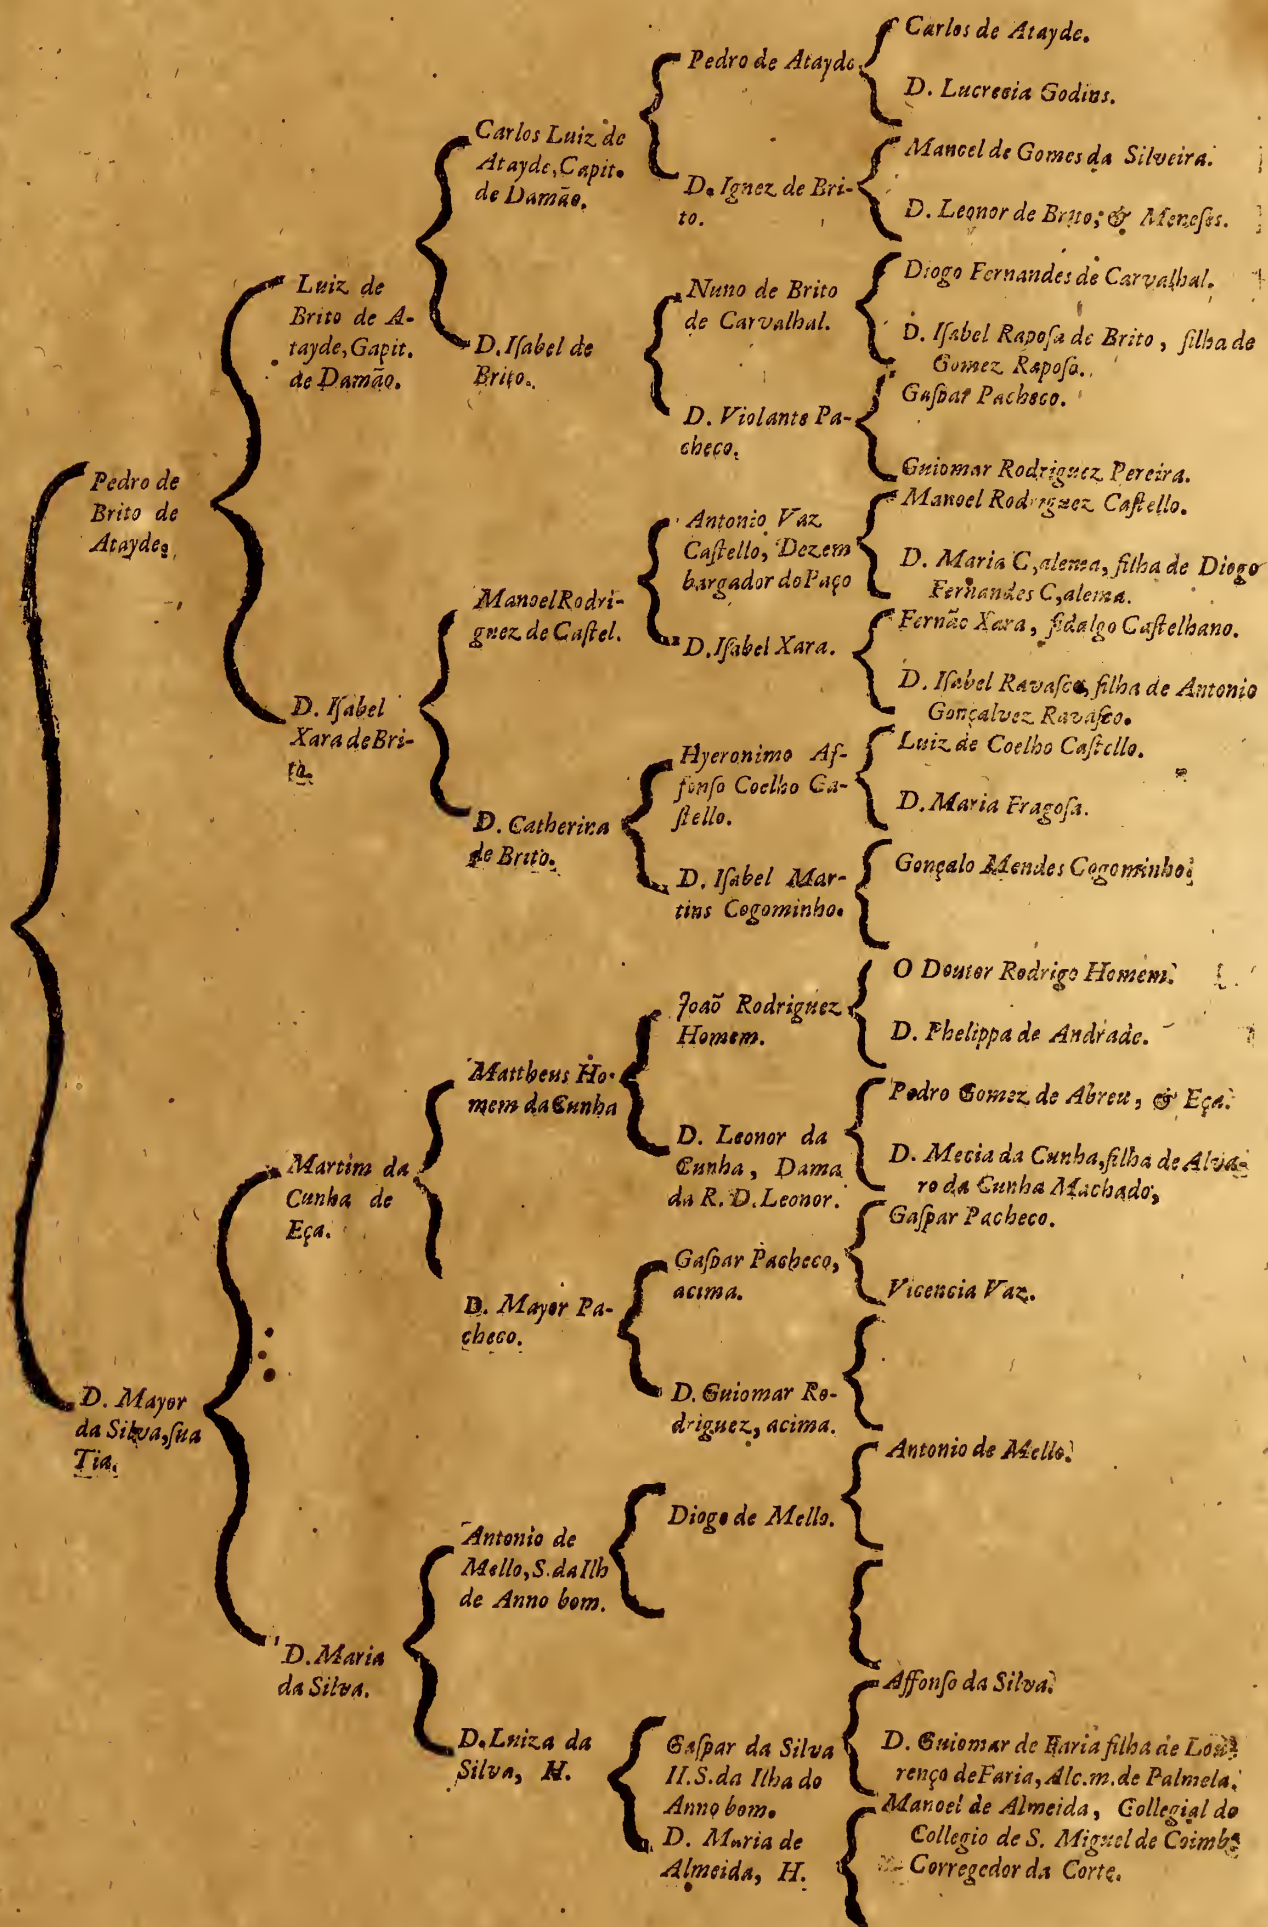 Pedro de
Brito de
Atayde,
D. Mayor
da Silva, ſua
Tia.
Luiz de
Brito de A-
tayde, Gapit.
de Damão.
D. Iſabel
Xara de Bri-
to.
Martim da
Cunha de
Eça.
D. Maria
da Silva.
Carlos Luiz de
Atayde, Capit.
de Damão.
D. Iſabel de
Brito.
Manoel Rodri-
guez de Caſtel.
D. Catherina
de Brito.
Mattheus Ho-
mem da Cunha
D. Mayor Pa-
checo.
Antonio de
Mello, S. da Ilh
de Anno bom.
D. Luiza da
Silva, H.
Pedro de Atayde
D. Ignez de Bri-
to.
Nuno de Brito
de Carvalhal.
D. Violante Pa-
checo.
Antonio Vaz
Caſtello, Dezem
bargador do Paço
D. Iſabel Xara.
Hyeronimo Af-
fonſo Coelho Ca-
ſtello.
D. Iſabel Mar-
tins Cogominho.
Joaõ Rodriguez
Homem.
D. Leonor da
Cunha, Dama
da R. D. Leonor.
Gaſpar Pacheco,
acima.
D. Guiomar Ro-
driguez, acima.
Diogo de Mello.
Gaſpar da Silva
II. S. da Ilha do
Anno bom.
D. Maria de
Almeida, H.
Carlos de Atayde.
D. Lucrecia Godins.
Manoel de Gomes da Silveira.
D. Leonor de Brito, & Meneſes.
Diogo Fernandes de Carvalhal.
D. Iſabel Rapoſa de Brito, filha de
Gomez Rapoſo.
Gaſpar Pacheco.
Guiomar Rodriguez Pereira.
Manoel Rodriguez Caſtello.
D. Maria C,alema, filha de Diogo
Fernandes C,alema.
Fernão Xara, fidalgo Caſtelhano.
D. Iſabel Ravaſco, filha de Antonio
Gonçalvez Ravaſco.
Luiz de Coelho Caſtello.
D. Maria Fragoſa.
Gonçalo Mendes Cogominho.
O Doutor Rodrigo Homem.
D. Phelippa de Andrade.
Pedro Gomez de Abreu, & Eça.
D. Mecia da Cunha, filha de Alva-
ro da Cunha Machado,
Gaſpar Pacheco.
Vicencia Vaz.
Antonio de Mello.
Affonſo da Silva.
D. Guiomar de Faria filha de Lou-
renço de Faria, Alc. m. de Palmela.
Manoel de Almeida, Collegial do
Collegio de S. Miguel de Coimb.
Corregedor da Corte.